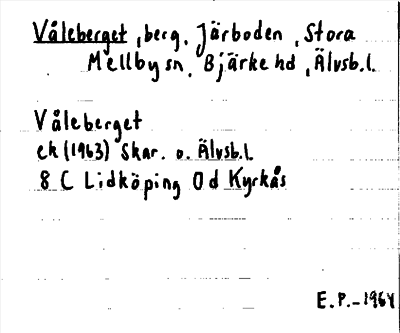 Våleberget, berg, Järboden, Stora
Mellby sn, Bjärke hd, Älvsb.l.
Våleberget
ek (1963) Skar. o. Älvsb.l.
8 C Lidköping 0d Kyrkås
E.P.-1964